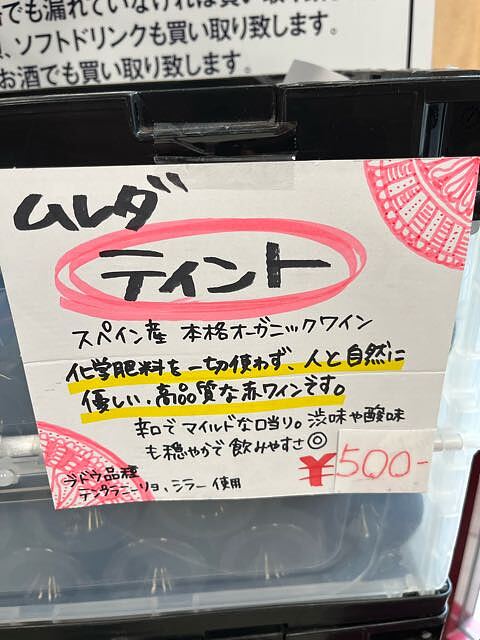 でも漏れていなければ買い取り致し
、ソフトドリンクも買い取り致します。
お酒でも買い取り致します。
ムレダ
ティント
スペイン産 本格オーガニックワイン
化学肥料を一切使わず、人と自然に
優しい、高品質な赤ワインです。
辛口でマイルドな口当り。渋味や酸味
も穏やかで飲みやすさ◎
¥500-
ブドウ品種
テンプラニーリョ、シラー使用